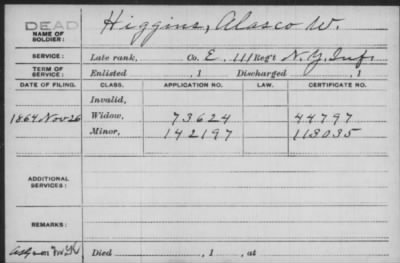 DEAD
NAME OF SOLDIER: Higgins, Alasco W.
SERVICE: Late rank, Co. E. 111 Reg't N. Y. Inf.
TERM OF SERVICE: Enlisted , 1 Discharged , 1
DATE OF FILING. CLASS. APPLICATION NO. LAW. CERTIFICATE NO.
Invalid,
1864 Nov 26 Widow, 73624 44797
Minor, 142197 113035
ADDITIONAL SERVICES:
REMARKS:
Died , 1 , at